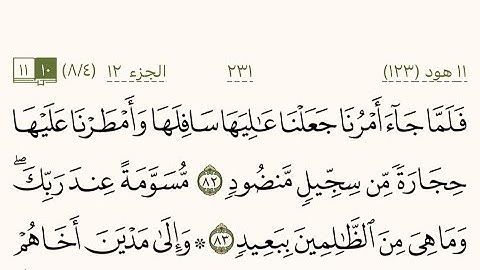 ١١ هود (١٢٣) ٢٣١ الجزء ١٢ (٨/٤) ١٠ ١١
فَلَمَّا جَآءَ أَمْرُنَا جَعَلْنَا عَٰلِيَهَا سَافِلَهَا وَأَمْطَرْنَا عَلَيْهَا
حِجَارَةً مِّن سِجِّيلٍ مَّنضُودٍ ٨٢ مُّسَوَّمَةً عِندَ رَبِّكَ ۖ
وَمَا هِىَ مِنَ ٱلظَّٰلِمِينَ بِبَعِيدٍ ٨٣ ۞ وَإِلَىٰ مَدْيَنَ أَخَاهُمْ